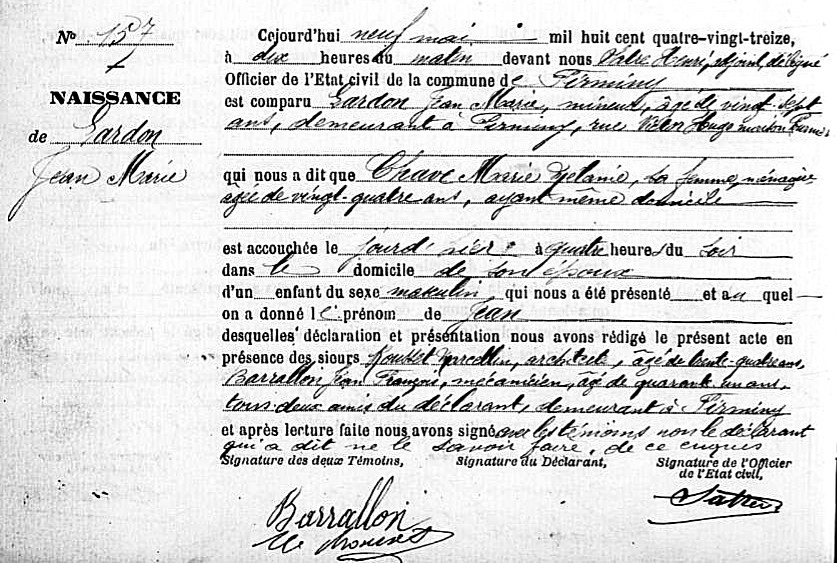 N° 157
NAISSANCE
de Gardon
Jean Marie
Cejourd'hui neuf mai mil huit cent quatre-vingt-treize,
à dix heures du matin devant nous Henri, adjoint, délégué
Officier de l'Etat civil de la commune de Firminy
est comparu Gardon Jean Marie, mineur, âgé de vingt-sept
ans, demeurant à Firminy, rue Victor Hugo maison
qui nous a dit que Chave Marie Mélanie, sa femme, ménagère,
âgée de vingt-quatre ans, ayant même domicile
est accouchée le jour d'hier à quatre heures du soir
dans le domicile de son époux
d'un enfant du sexe masculin, qui nous a été présenté et au quel
on a donné le prénom de Jean
desquelles déclaration et présentation nous avons rédigé le présent acte en
présence des sieurs Marcellin, architecte, âgé de trente-quatre ans,
Barrallon Jean François, mécanicien, âgé de quarante un ans,
tous deux amis du déclarant, demeurant à Firminy
et après lecture faite nous avons signé avec les témoins non le déclarant
qui a dit ne le savoir faire, de ce enquis
Signature des deux Témoins, Signature du Déclarant, Signature de l'Officier
de l'Etat civil,
Barrallon